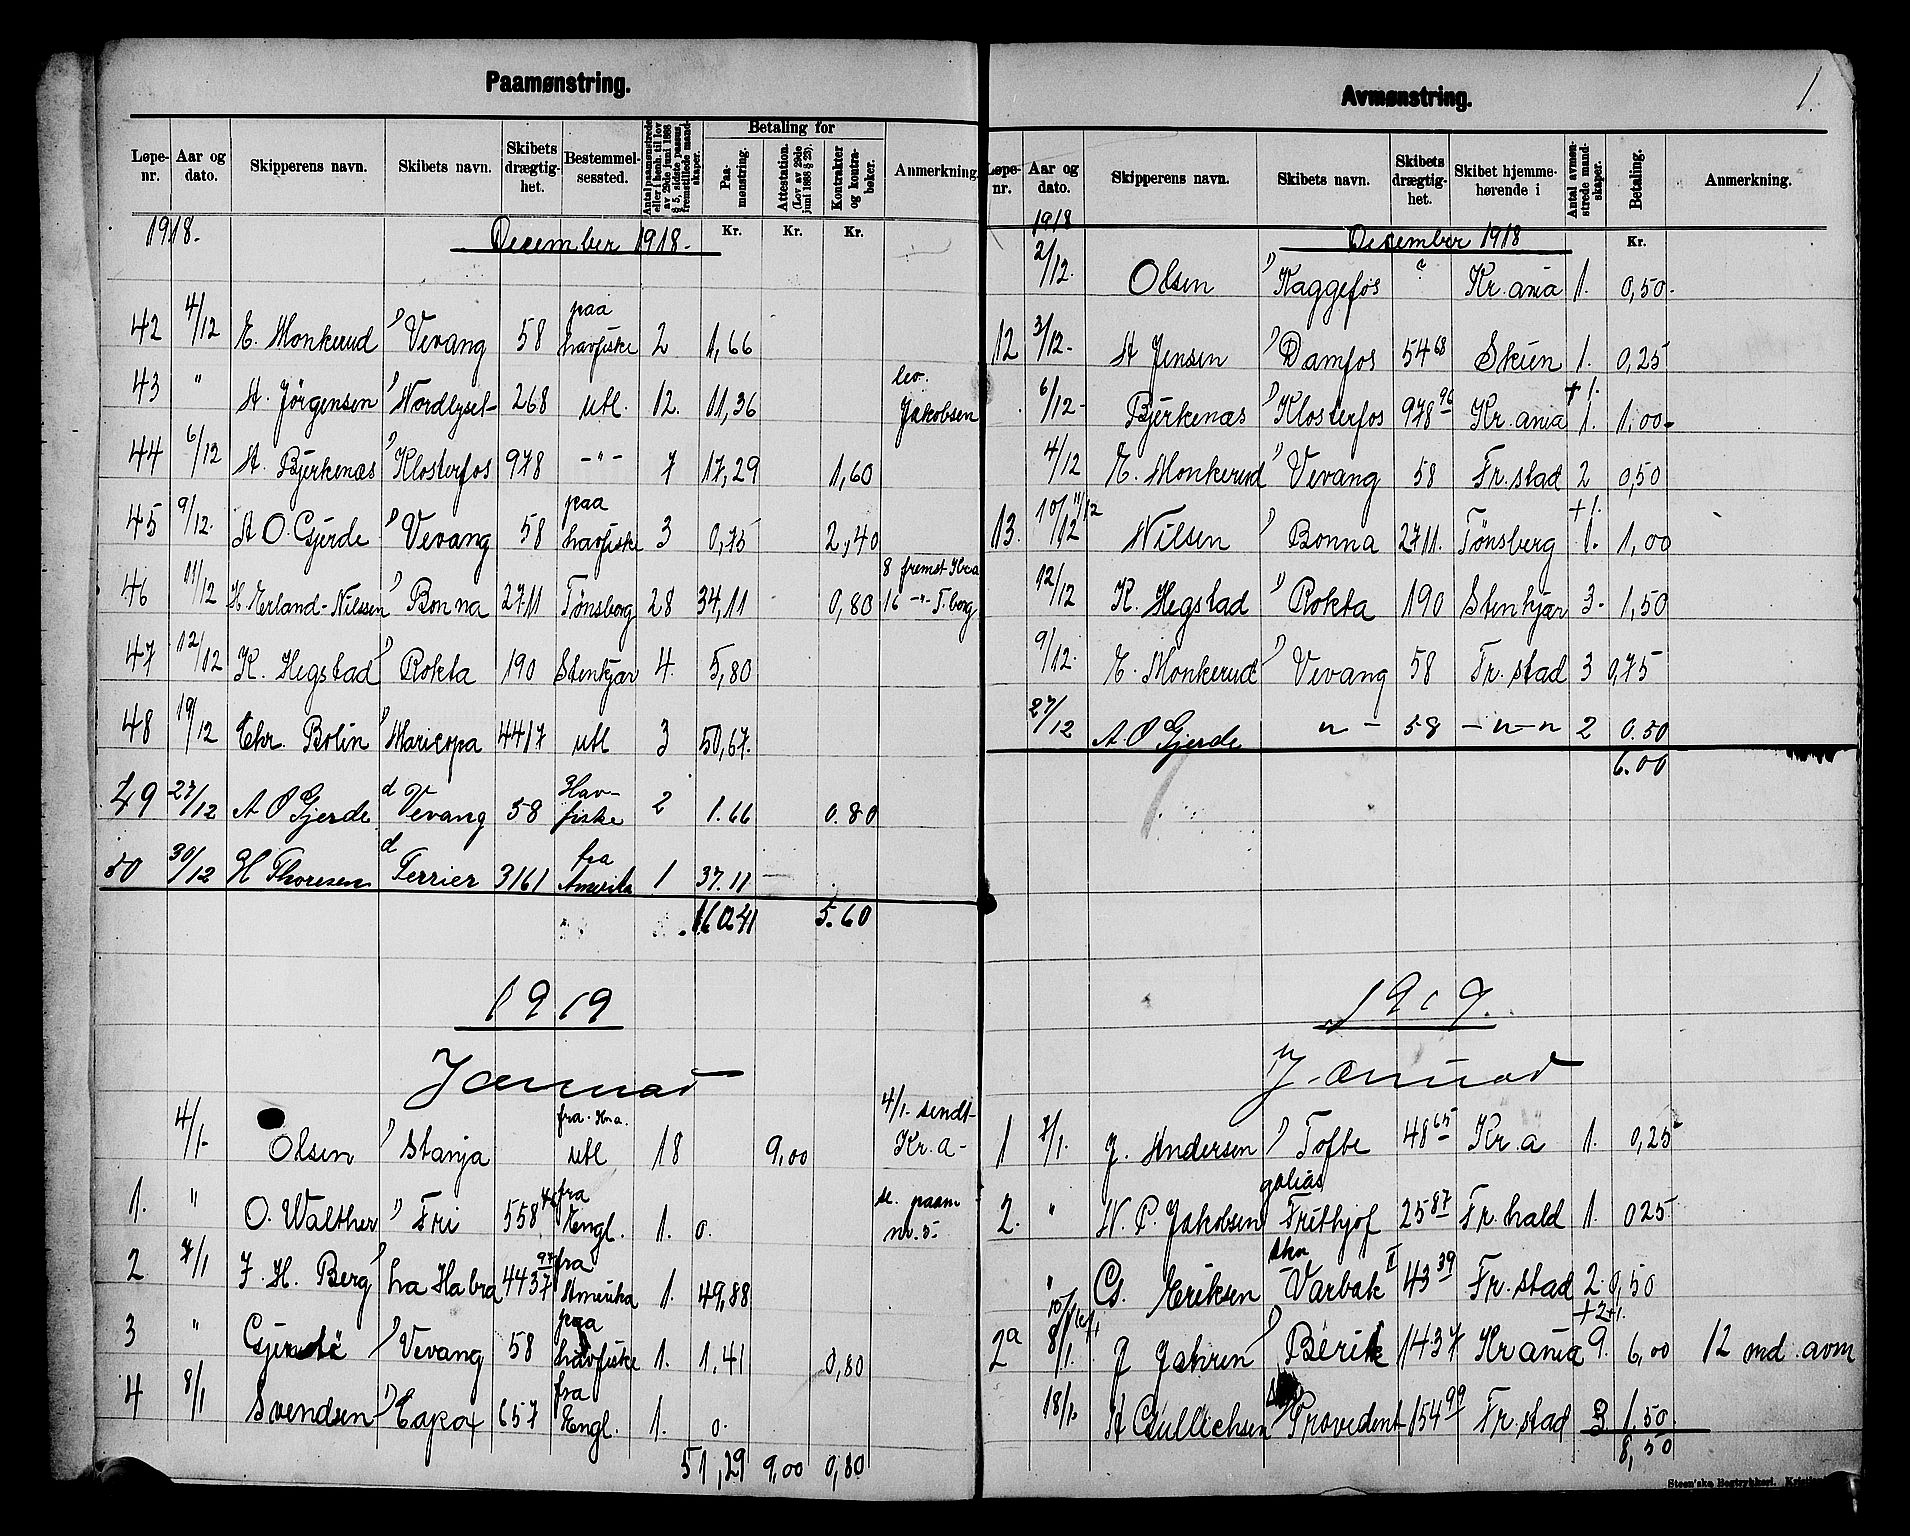 Paamønstring.
Løpe-nr. | Aar og dato. | Skipperens navn. | Skibets navn. | Skibets drægtighet. | Bestemmelsessted. | Antal paamønstrede eller i henh. til lov av 29de juni 1888 § 5, sidste passus, fremstillede mandskaper. | Betaling for | Paamønstring. | Attestation. (Lov av 29de juni 1888 § 23). | Kontrakter og kontrabøker. | Anmerkning.
1918. December 1918. Kr. Kr. Kr.
42 4/12 E. Monkerud " Vevang 58 paa havfiske 2 1,66
43 " A. Jörgensen " Nordlyset 268 utl. 12. 11,36 lev. Jakobsen
44 6/12 A. Bjerkenæs " Klosterfos 978 -"- 7 17,29 1,60
45 9/12. A O. Gjerde " Vevang 58 paa havfiske 3 0,75 2,40
46 11/12 H. Erland-Nilssen " Bonna 2711 Tønsberg 28 34,11 0,80 8 fremst Kra 16 -"- T.berg
47 12/12 K. Hegstad " Rokta 190 Stenkjær 4. 5,80
48 19/12 Chr. Bolin " Maricopa 4417 utl 3 50,67.
49 27/12 A O Gjerde d Vevang 58 Hav-fiske 2 1.66 0.80
50 30/12 H Thoresen d Terrier 3161 fra Amerika 1 37.11
160.41 5.60
1919
Januar
4/1- Olsen " Stanja fra Kra. utl 18 9,00 4/1- sendt Kr.a-
1. " O. Walther " Fri 558 fra Engl. 1. 0. se. paam nr. 5-
2 7/1 J. H. Berg " La Habra 4437 97 fra Amerika 1. 49,88
3 " Gjerde " Vevang 58 paa havfiske 1. 1,41 0,80
4 8/1 Svendsen " Capox 657 fra Engl. 1. 0.
51,29 9,00 0,80
1.
Avmønstring.
Løpe-nr. | Aar og dato. | Skipperens navn. | Skibets navn. | Skibets drægtighet. | Skibet hjemmehørende i | Antal avmønstrede mandskaper. | Betaling. | Anmerkning.
1918 December 1918 Kr.
2/12. Olsen " Kaggefos ? Kr.ania 1. 0,50.
12 3/12- A Jensen " Damfos 54 68 Skien 1. 0,25
6/12- Bjerkenæs " Klosterfos 978 96 Kr.ania 1. + 1. 1,00-
4/12 E. Monkerud " Vevang 58 Fr.stad 2 0,50
13. 10/12 11/12 Nilsen " Bonna 2711. Tønsberg 1. + 1. 1,00
12/12 K. Hegstad " Rokta 190 Stenkjær 3. 1,50
9/12. E. Monkerud " Vevang 58 Fr.stad 3 0,75
27/12 A. O Gjerde " - 58 -"-" 2 0.50
6.00
1919.
Januar
1 7/1. J. Andersen " Tofte 48 65 Kr.a 1. 0,25
2. " W. P. Jakobsen galias Frithjof 25 87 Fr.hald 1. 025
" G. Eriksen skn Varbak II 43 39 Fr.stad 2. 0,50
2a 8/1. 10/1 J Jahren " Bérik 1437 Kr ania 9. +2+1. 6,00 12 md. avm
18/1. A Gullichsen Provident 154 99 Fr.stad 3 1,50
8,50
Steen'ske Bogtrykkeri.